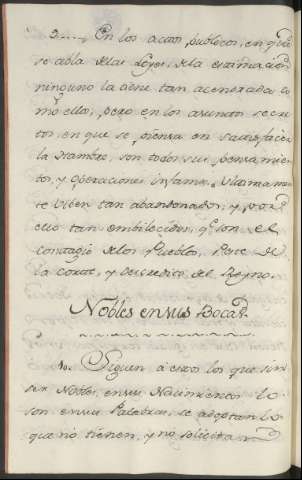 9...., En los actos publicos, en qᵉ
se abla delas Leyes, dela estimacion
ninguno la tiene tan acendrada co
mo ellos, pero en los asuntos secre
tos, en que se piensa en satisfacer
la Hambre, son todos sus pensamien
tos, y operaciones infames. Ultimamen
te viben tan abandonados, y por
ello tan embilecidos, qᵉ son el
contagio delos Pueblos, Peste de
la Corte, y descredito del Reyno.
Nobles en sus Bocas.
10. Siguen à estos los que sin
ser Nobles en sus Nacimientos lo
son en sus Palabras, se adoptan lo
que no tienen, y no solicitan